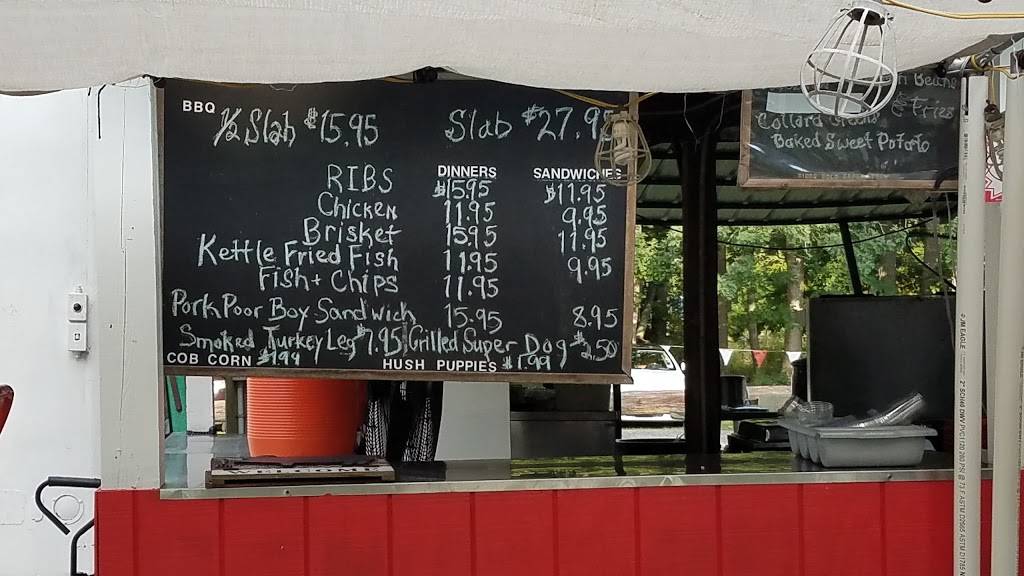 BBQ
1/2 Slab $15.95 Slab $27.95
DINNERS SANDWICHES
RIBS $15.95 $11.95
Chicken 11.95 9.95
Brisket 15.95 11.95
Kettle Fried Fish 11.95 9.95
Fish + Chips 11.95
Pork Poor Boy Sandwich 15.95 8.95
Smoked Turkey Leg $7.95 Grilled Super Dog $2.50
COB CORN $1.99 HUSH PUPPIES $1.99
Beans
Fries
Collard
Baked Sweet Potato
JM EAGLE